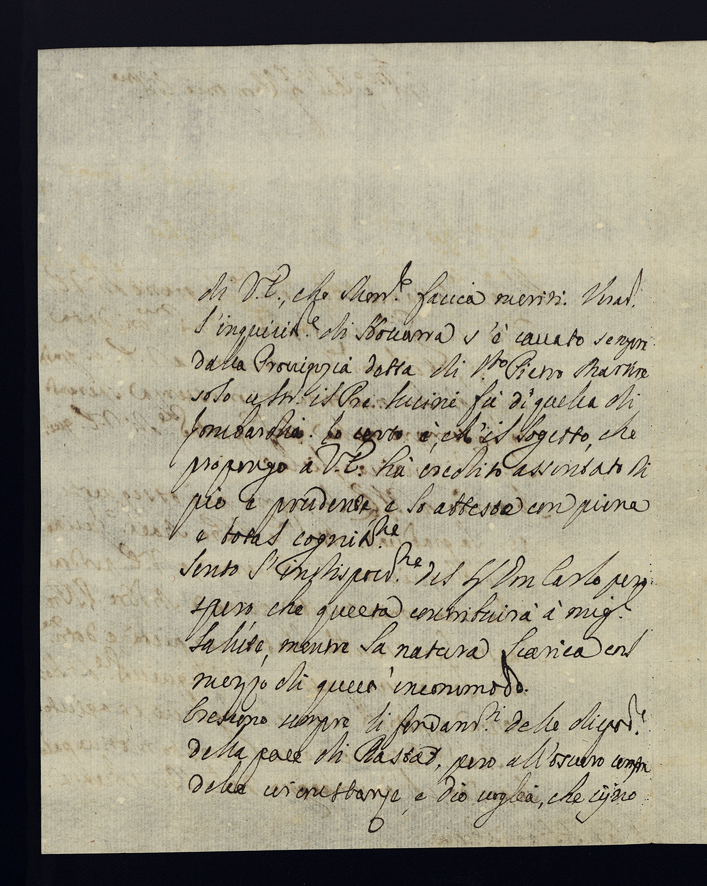 di V.E., che Mon.re faccia meriti.
l'inquisit.e di Novarra s'è cavato sempre
dalla Provinzia detta di S.to Pietro Martire
solo il Pre. Lucini fù di quella di
Lombardia. Io certo è, ch'il sogetto, che
propongo à V.E. hà credito assentato di
pio e prudente, e lo attesto con piena
e total cognit.ne
Sento l'indisposi.ne del Sr Don Carlo però
spero che questa contribuirà à migl.r
salute, mentre la natura scarica col
mezzo di quest'incommodo.
Crescono sempre li fondam.ti delle
della pace di Rastat, però all'oscuro sempre
delle circostanze, e dio voglia, che siino